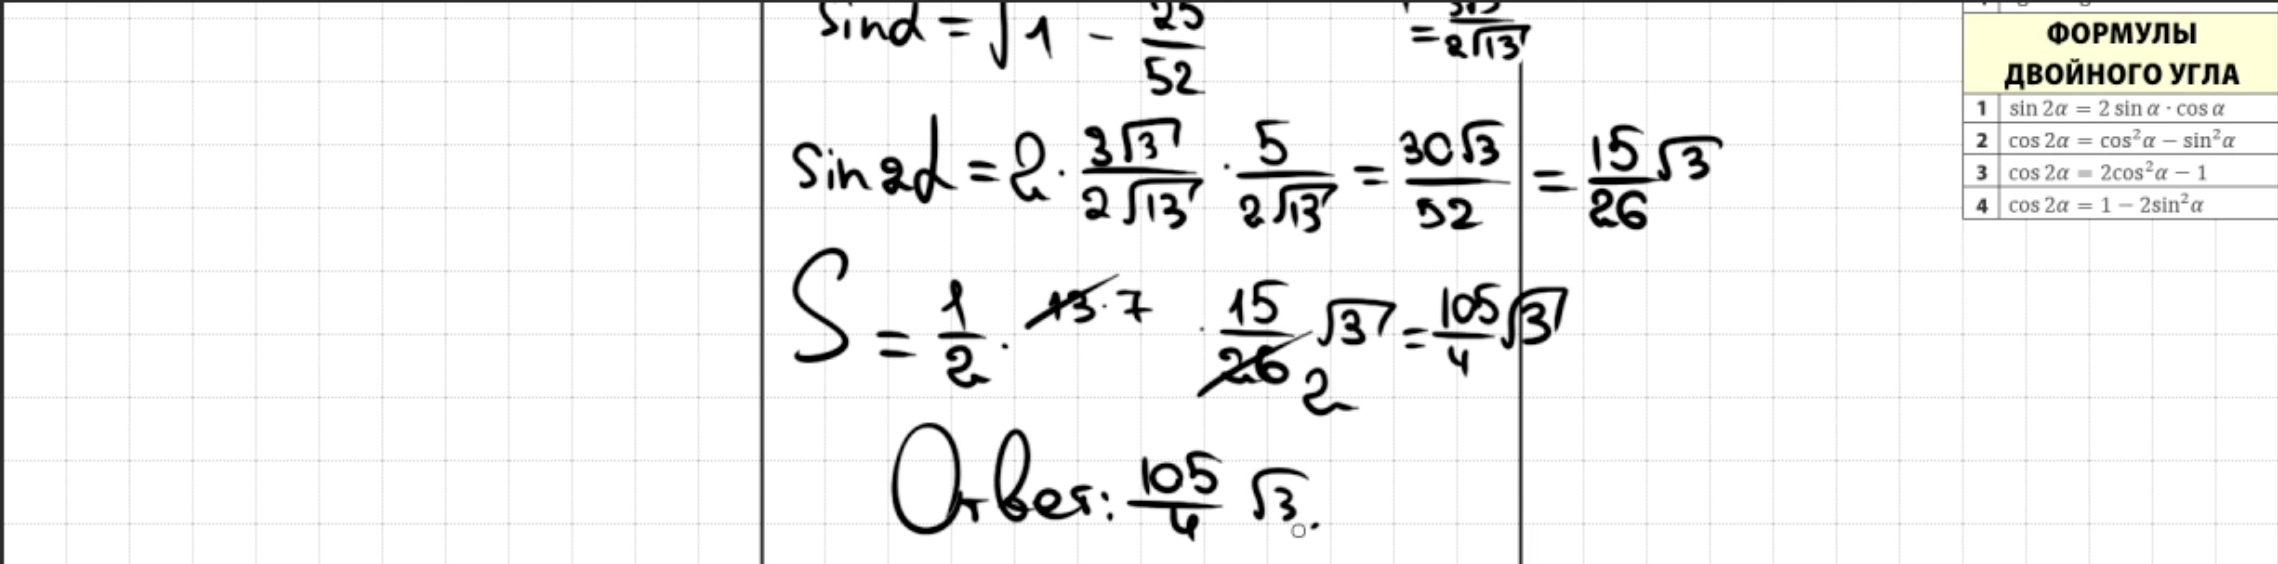 sin α = √1 - 25/52 = 3√3/2√13
sin 2α = 2 · 3√3/2√13 · 5/2√13 = 30√3/52 = 15/26 √3
S = 1/2 · 13 · 7 · 15/26 √3 = 105/4 √3
2
Ответ: 105/4 √3.
ФОРМУЛЫ
ДВОЙНОГО УГЛА
1 sin 2α = 2 sin α · cos α
2 cos 2α = cos²α − sin²α
3 cos 2α = 2cos²α − 1
4 cos 2α = 1 − 2sin²α